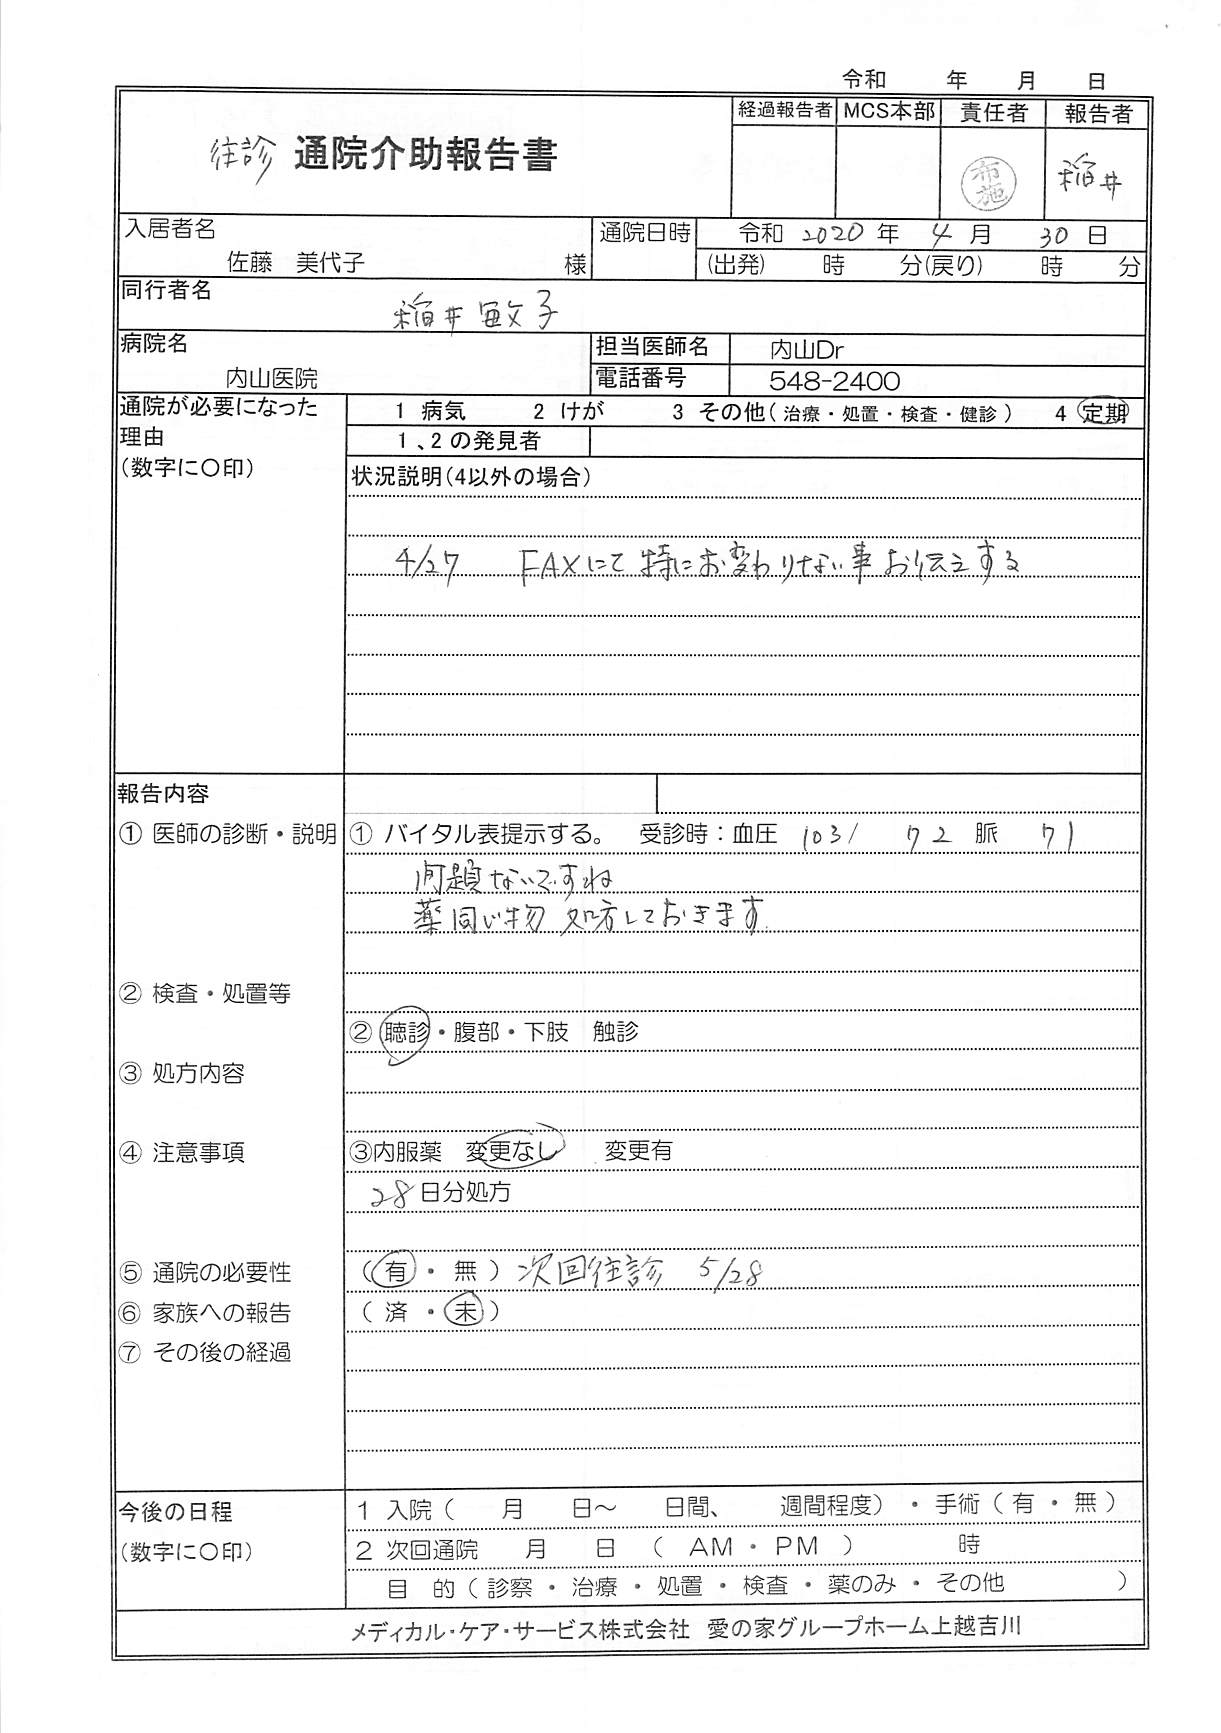 令和　　年　　月　　日
経過報告者 MCS本部 責任者 報告者
往診 通院介助報告書
布施 稲井
入居者名
佐藤　美代子　様
通院日時 令和 2020 年 4 月 30 日
(出発)　時　分(戻り)　時　分
同行者名
稲井敏子
病院名
内山医院
担当医師名 内山Dr
電話番号 548-2400
通院が必要になった
理由
(数字に〇印)
1 病気　2 けが　3 その他(治療・処置・検査・健診)　4 定期
1、2の発見者
状況説明(4以外の場合)
4/27 FAXにて特にお変わりない事お伝えする
報告内容
① 医師の診断・説明
① バイタル表提示する。 受診時：血圧 103/ 72 脈 71
問題ないですね
薬同じ物 処方しておきます.
② 検査・処置等
② 聴診・腹部・下肢　触診
③ 処方内容
④ 注意事項
③内服薬　変更なし　変更有
28日分処方
⑤ 通院の必要性
(有・無) 次回往診 5/28
⑥ 家族への報告
(済・未)
⑦ その後の経過
今後の日程
(数字に〇印)
1 入院(　月　日〜　日間、　週間程度)・手術(有・無)
2 次回通院　月　日　(AM・PM)　時
目　的(診察・治療・処置・検査・薬のみ・その他　)
メディカル・ケア・サービス株式会社 愛の家グループホーム上越吉川